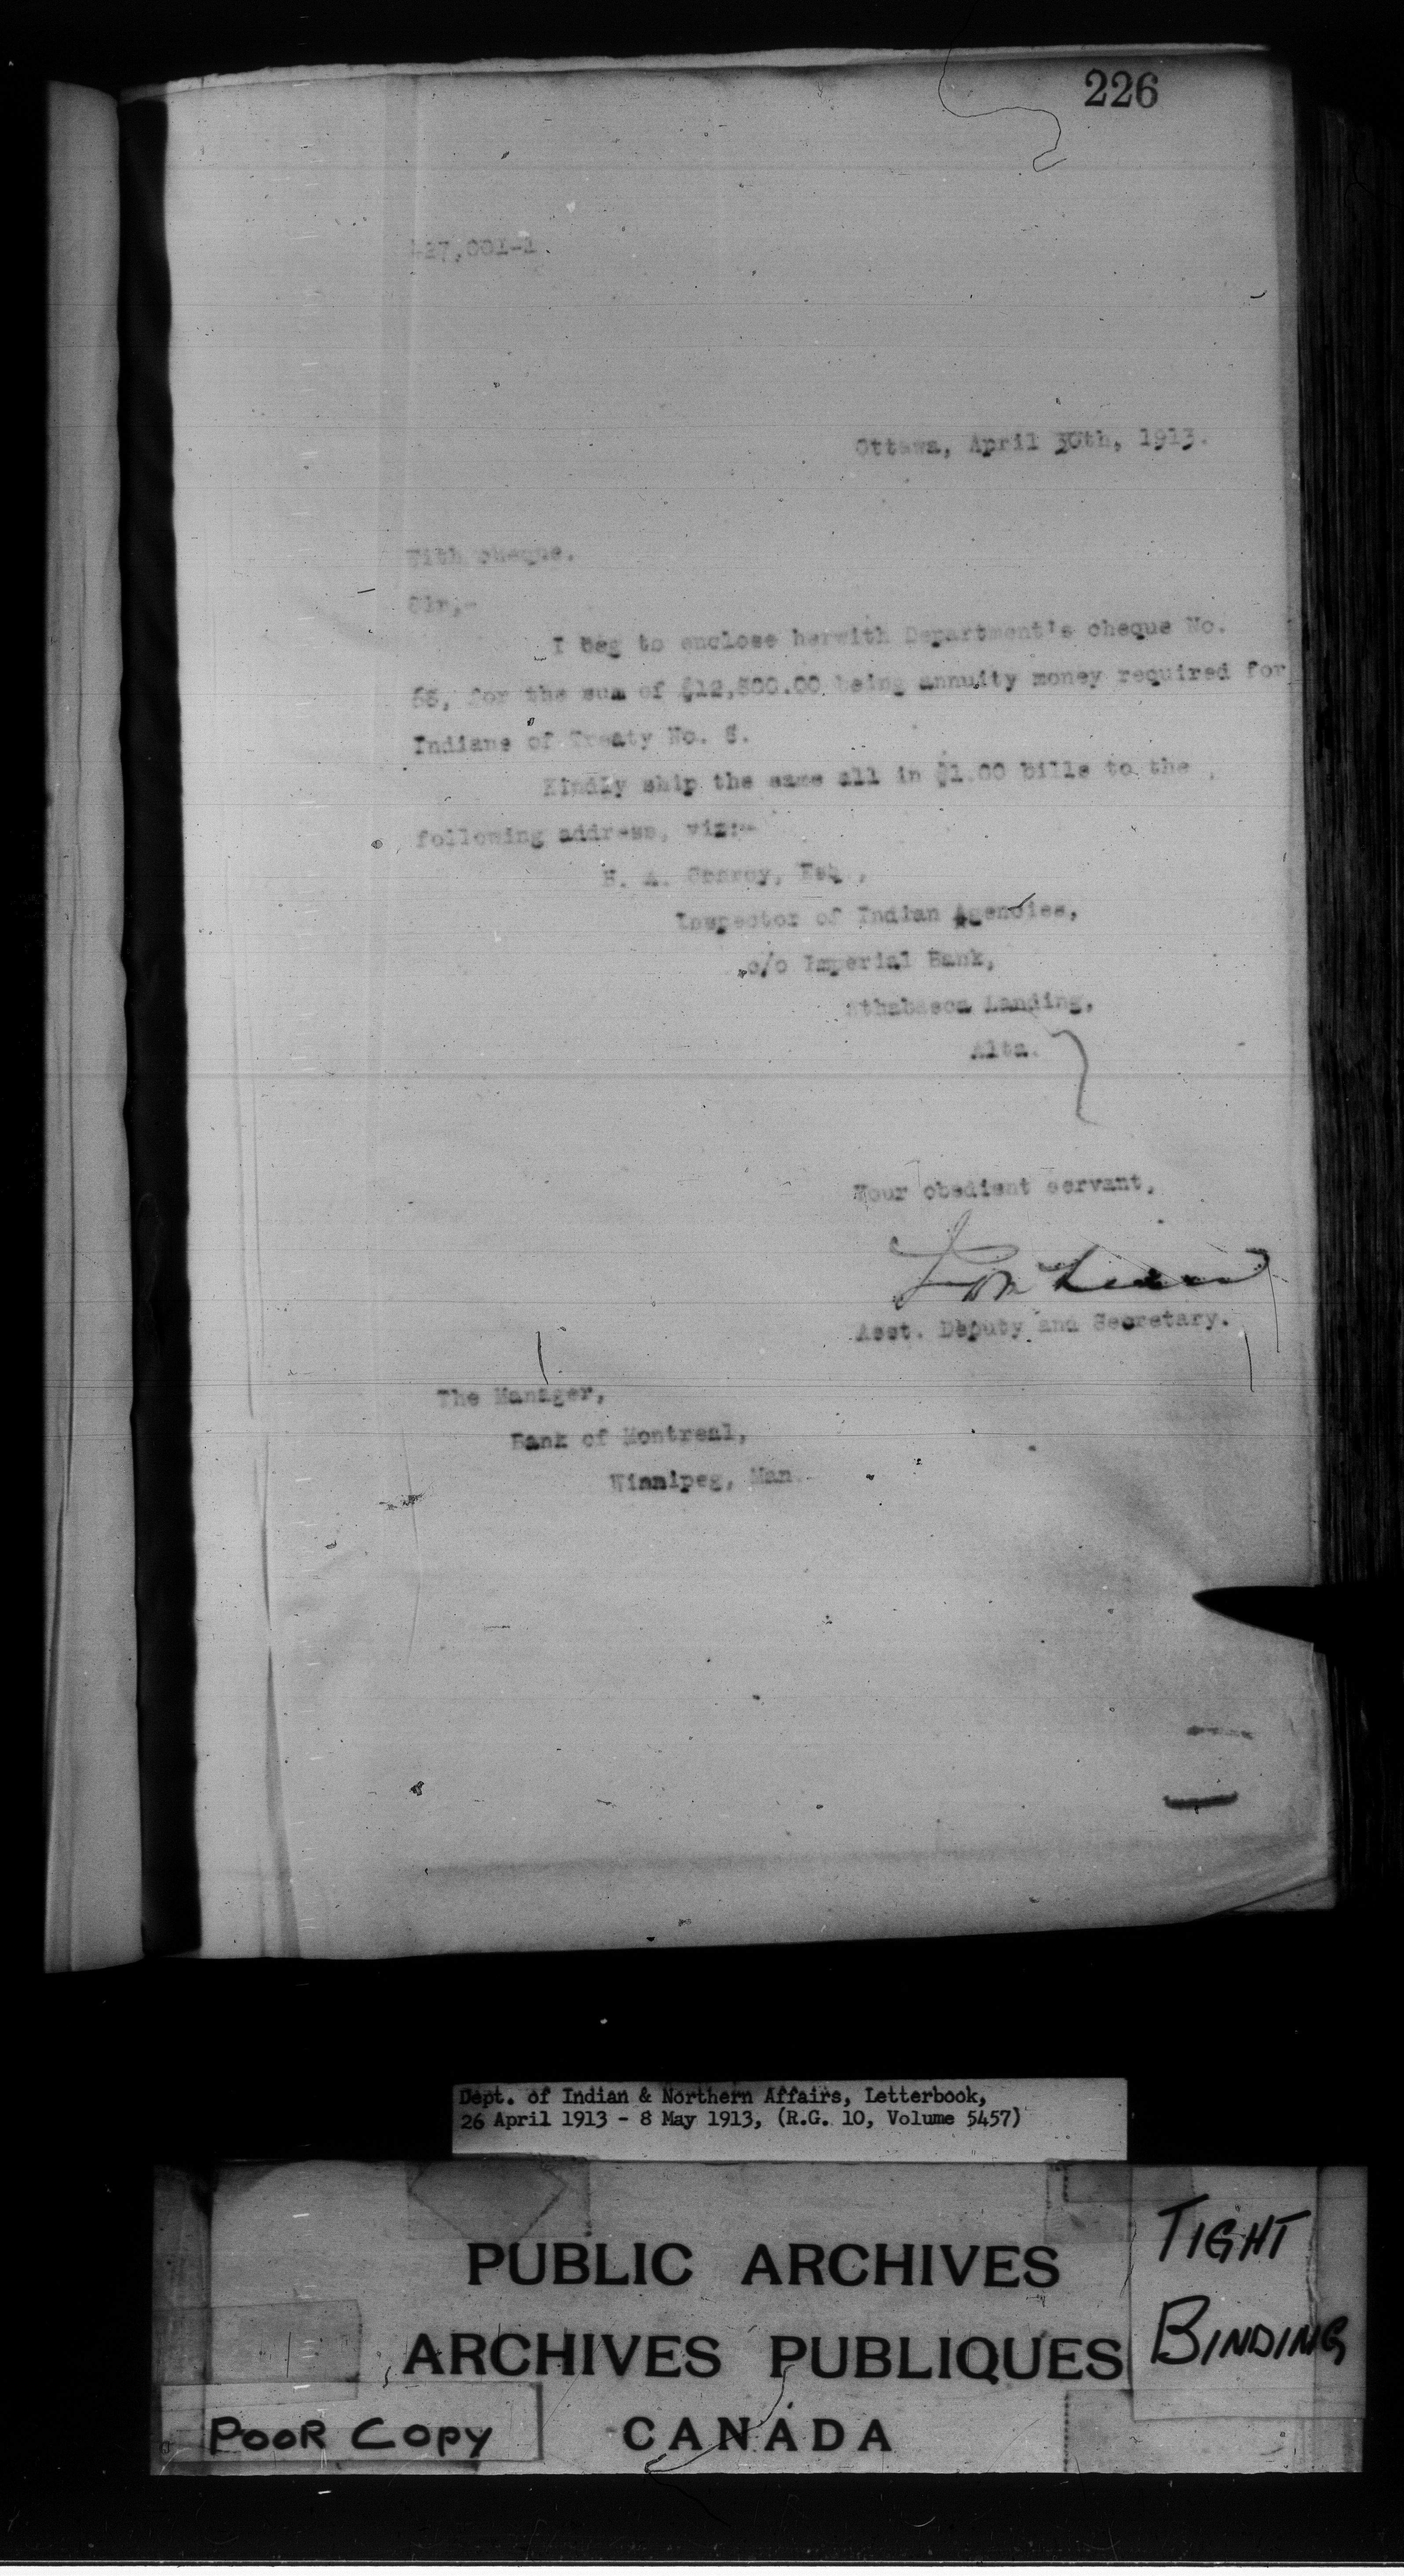 226
Ottawa, April 30th, 1913.
With cheque.
Sir,-
I beg to enclose herwith Department's cheque No.
for the sum of being annuity money required for
Indians of Treaty No. 8.
Kindly ship the same all in $1.00 bills to the
following address, viz:-
H. A. Conroy, Esq.,
Inspector of Indian Agencies,
c/o Imperial Bank,
Athabasca Landing,
Alta.
Your obedient servant,
Asst. Deputy and Secretary.
The Manager,
Bank of Montreal,
Winnipeg, Man.
Dept. of Indian & Northern Affairs, Letterbook,
26 April 1913 - 8 May 1913, (R.G. 10, Volume 5457)
PUBLIC ARCHIVES
ARCHIVES PUBLIQUES
CANADA
TIGHT
BINDING
POOR COPY